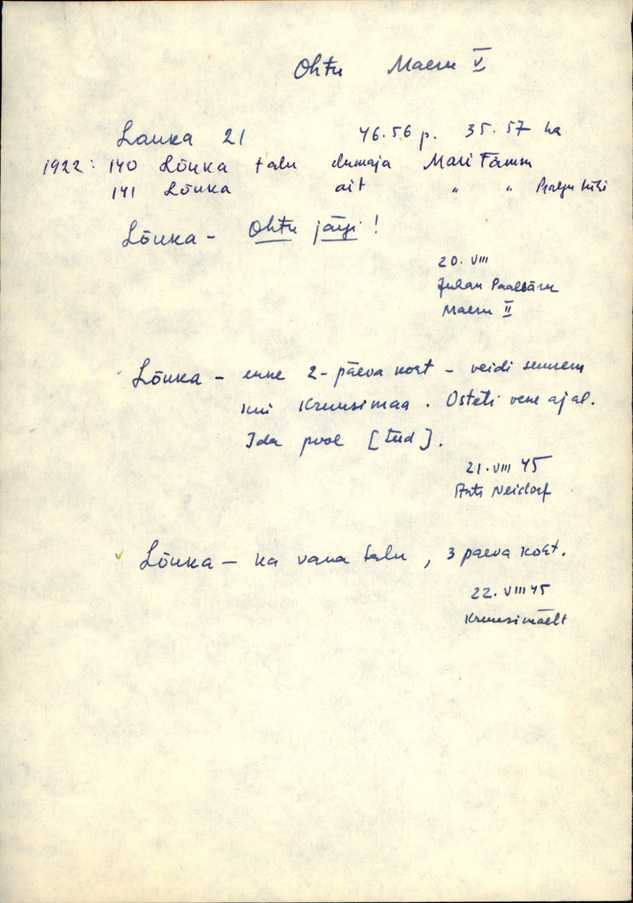 Ohtu Maeru V
Lauka 21 46.56 p. 35.57 ha
1922: 140 Lõuka talu elumaja Mari Tamm
141 Lõuka ait " "
Lõuka - Ohtu järgi!
20. VIII
Juhan Paalbärn
Maeru II
Lõuka - enne 2-päeva koht - veidi suurem
kui Kruusimaa. Osteti vene ajal.
Ida pool [teed].
21. VIII 45
Ants Neidorf
Lõuka - ka vana talu, 3 paeva koht.
22. VIII 45
Kruusimäelt